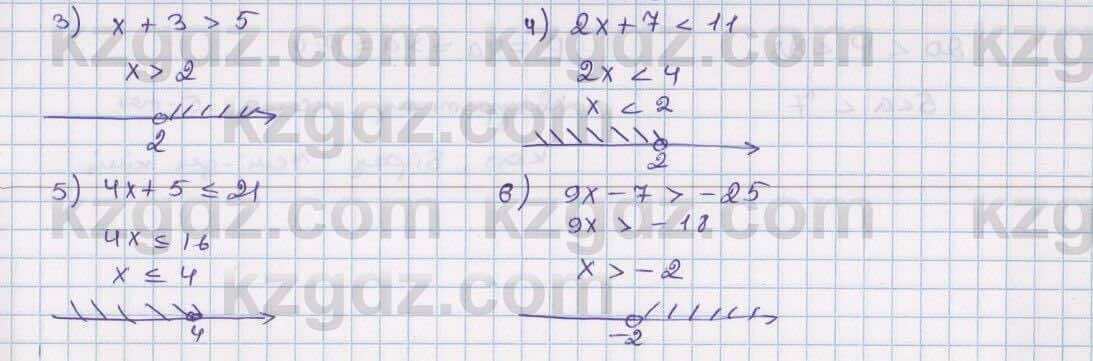 3) x + 3 > 5
x > 2
2
4) 2x + 7 < 11
2x < 4
x < 2
2
5) 4x + 5 ≤ 21
4x ≤ 16
x ≤ 4
4
6) 9x - 7 > -25
9x > -18
x > -2
-2
kzgdz.com
kzgdz.com
kzgdz.com
kzgdz.com